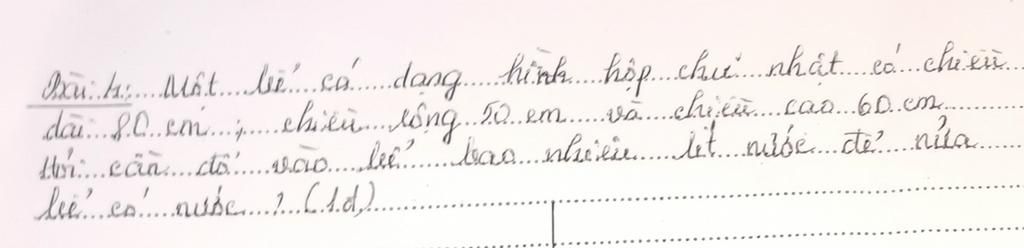 Bài 4: Một bể cá dạng hình hộp chữ nhật có chiều
dài 80 cm, chiều rộng 50 cm và chiều cao 60 cm
Hỏi cần đổ vào bể bao nhiêu lít nước để nửa
bể có nước ? (1đ)